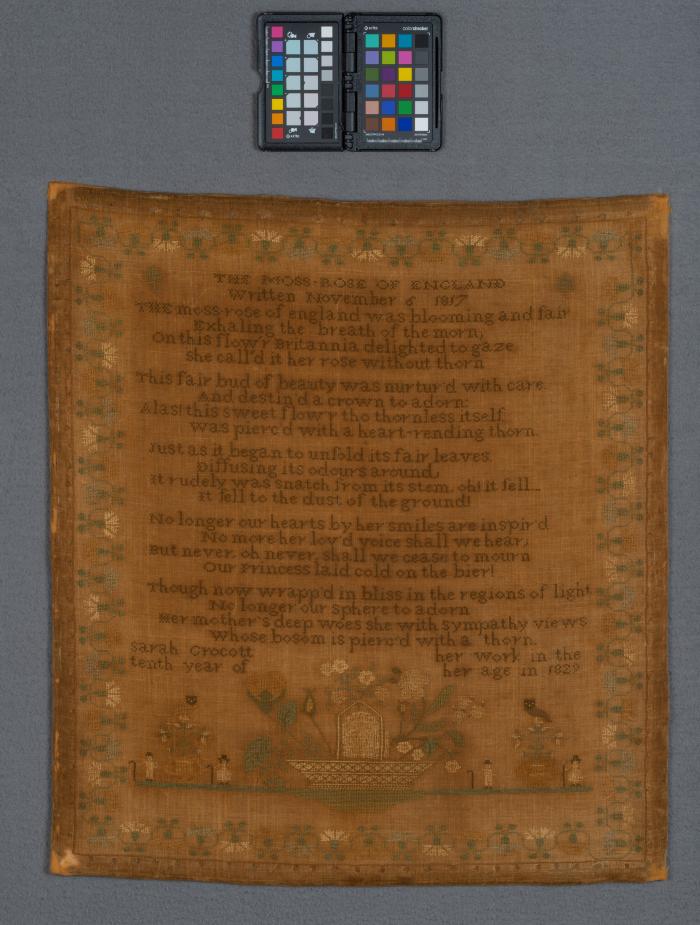 colorchecker
THE MOSS-ROSE OF ENGLAND
Written November 6 1817
THE moss-rose of england was blooming and fair
Exhaling the breath of the morn,
On this flow'r Britannia delighted to gaze
she call'd it her rose without thorn
This fair bud of beauty was nurtur'd with care
And destin'd a crown to adorn:
Alas! this sweet flow'r tho thornless itself
Was pierc'd with a heart-rending thorn.
Just as it began to unfold its fair leaves
Diffusing its odours around,
It rudely was snatch from its stem. oh! it fell...
It fell to the dust of the ground!
No longer our hearts by her smiles are inspir'd
No more her lov'd voice shall we hear,
But never, oh never, shall we cease to mourn
Our Princess laid cold on the bier!
Though now wrapp'd in bliss in the regions of light
No longer our sphere to adorn
Her mother's deep woes she with sympathy views
Whose bosom is pierc'd with a thorn.
Sarah Crocott her work in the
tenth year of her age in 1829